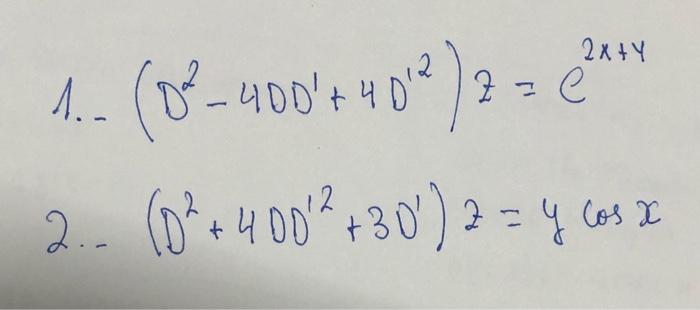 1.- (D² - 4DD' + 4D'²) z = e^{2x+y}
2.- (D² + 4DD'² + 3D') z = y cos x